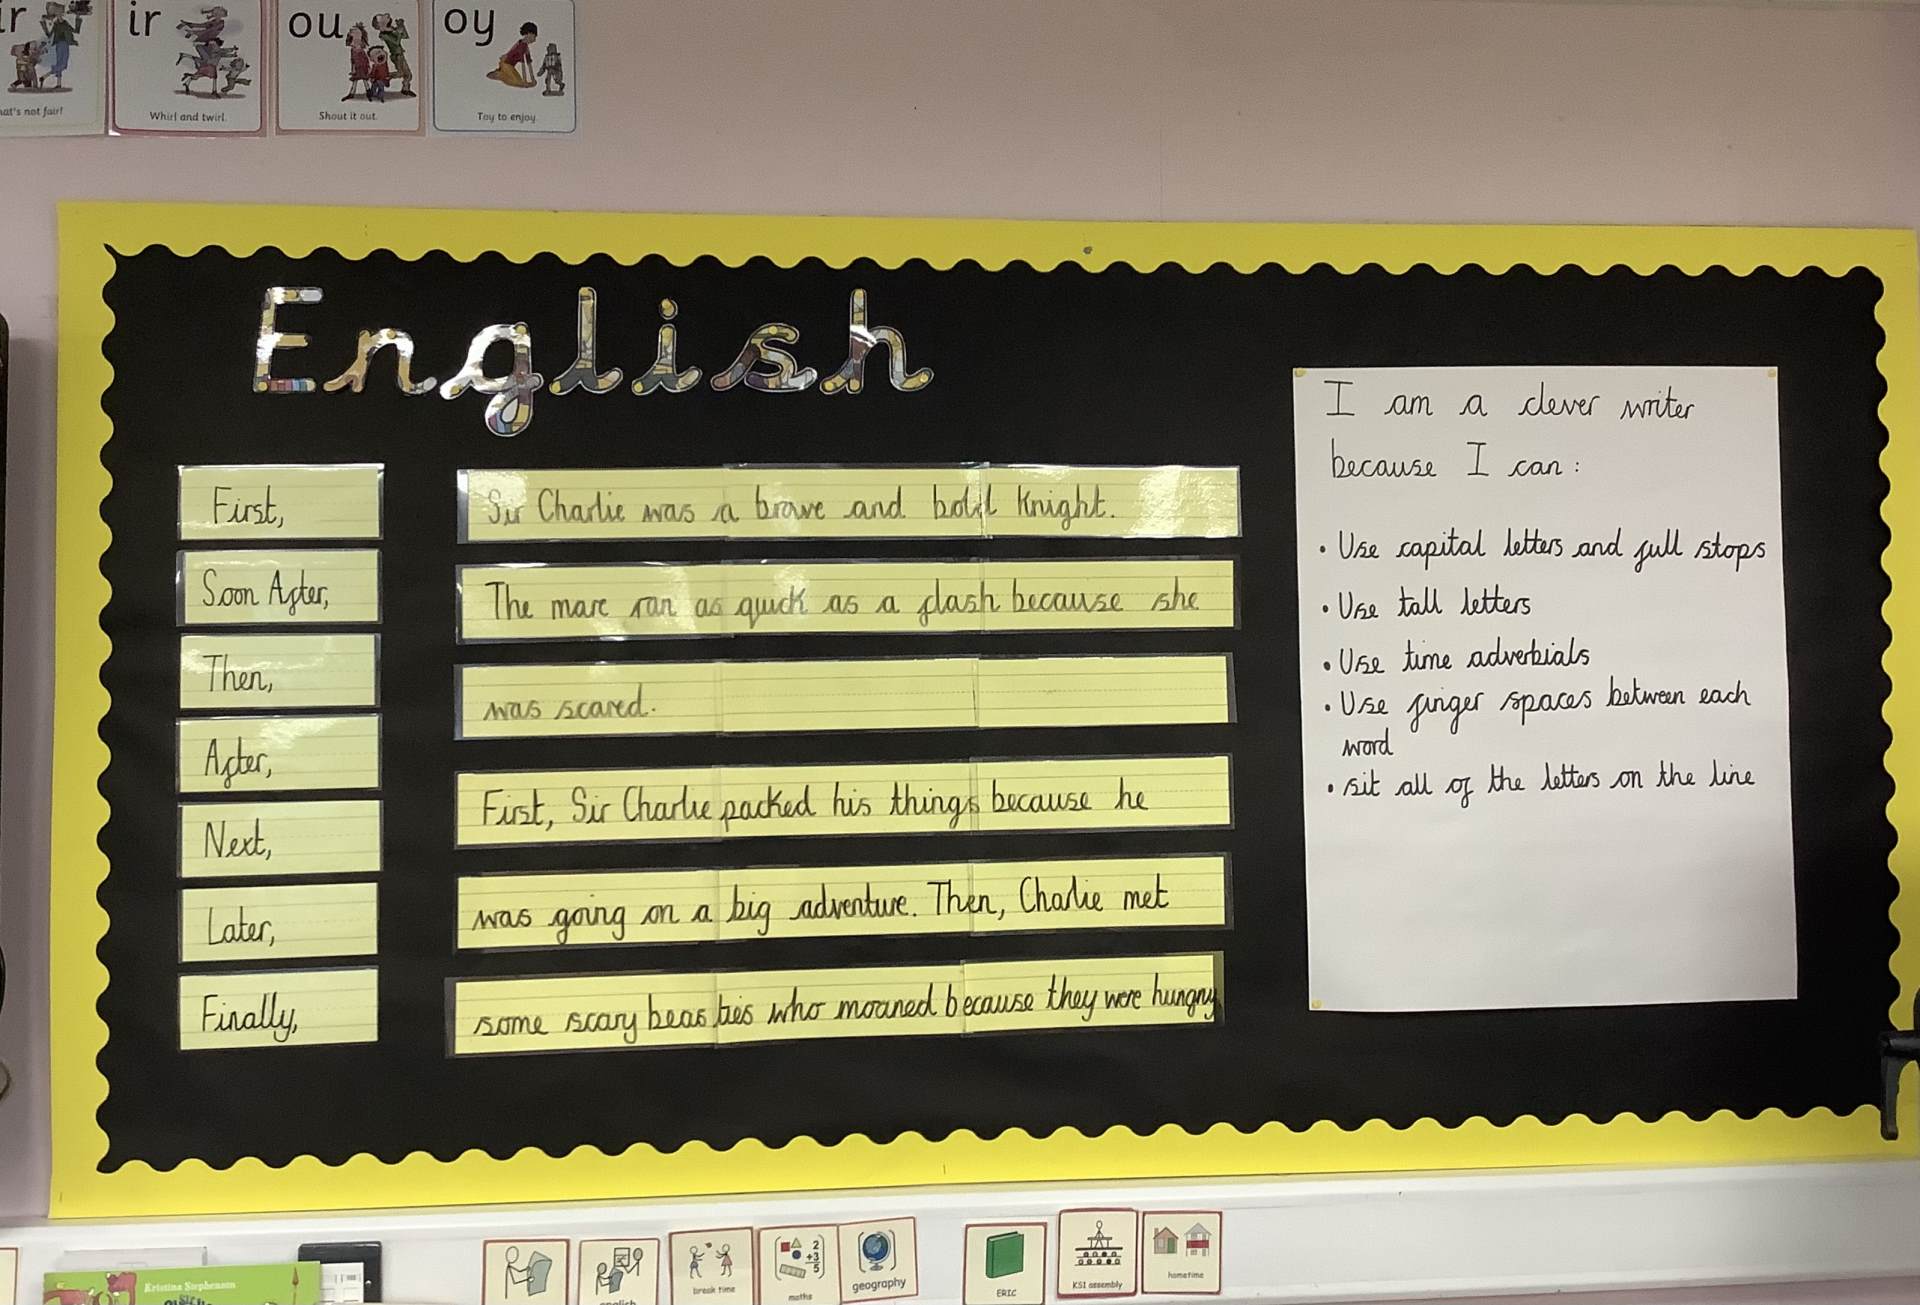 ir
ou
oy
Whirl and twirl
Shout it out
Toy to enjoy
not fair!
English
First,
Soon After,
Then,
After,
Next,
Later,
Finally,
Sir Charlie was a brave and bold Knight.
The mare ran as quick as a flash because she
was scared.
First, Sir Charlie packed his things because he
was going on a big adventure. Then, Charlie met
some scary beasties who moaned because they were hungry
I am a clever writer
because I can:
• Use capital letters and full stops
• Use tall letters
• Use time adverbials
• Use finger spaces between each
word
• sit all of the letters on the line
Kristina Stephenson
break time
maths
geography
ERIC
KS1 assembly
hometime